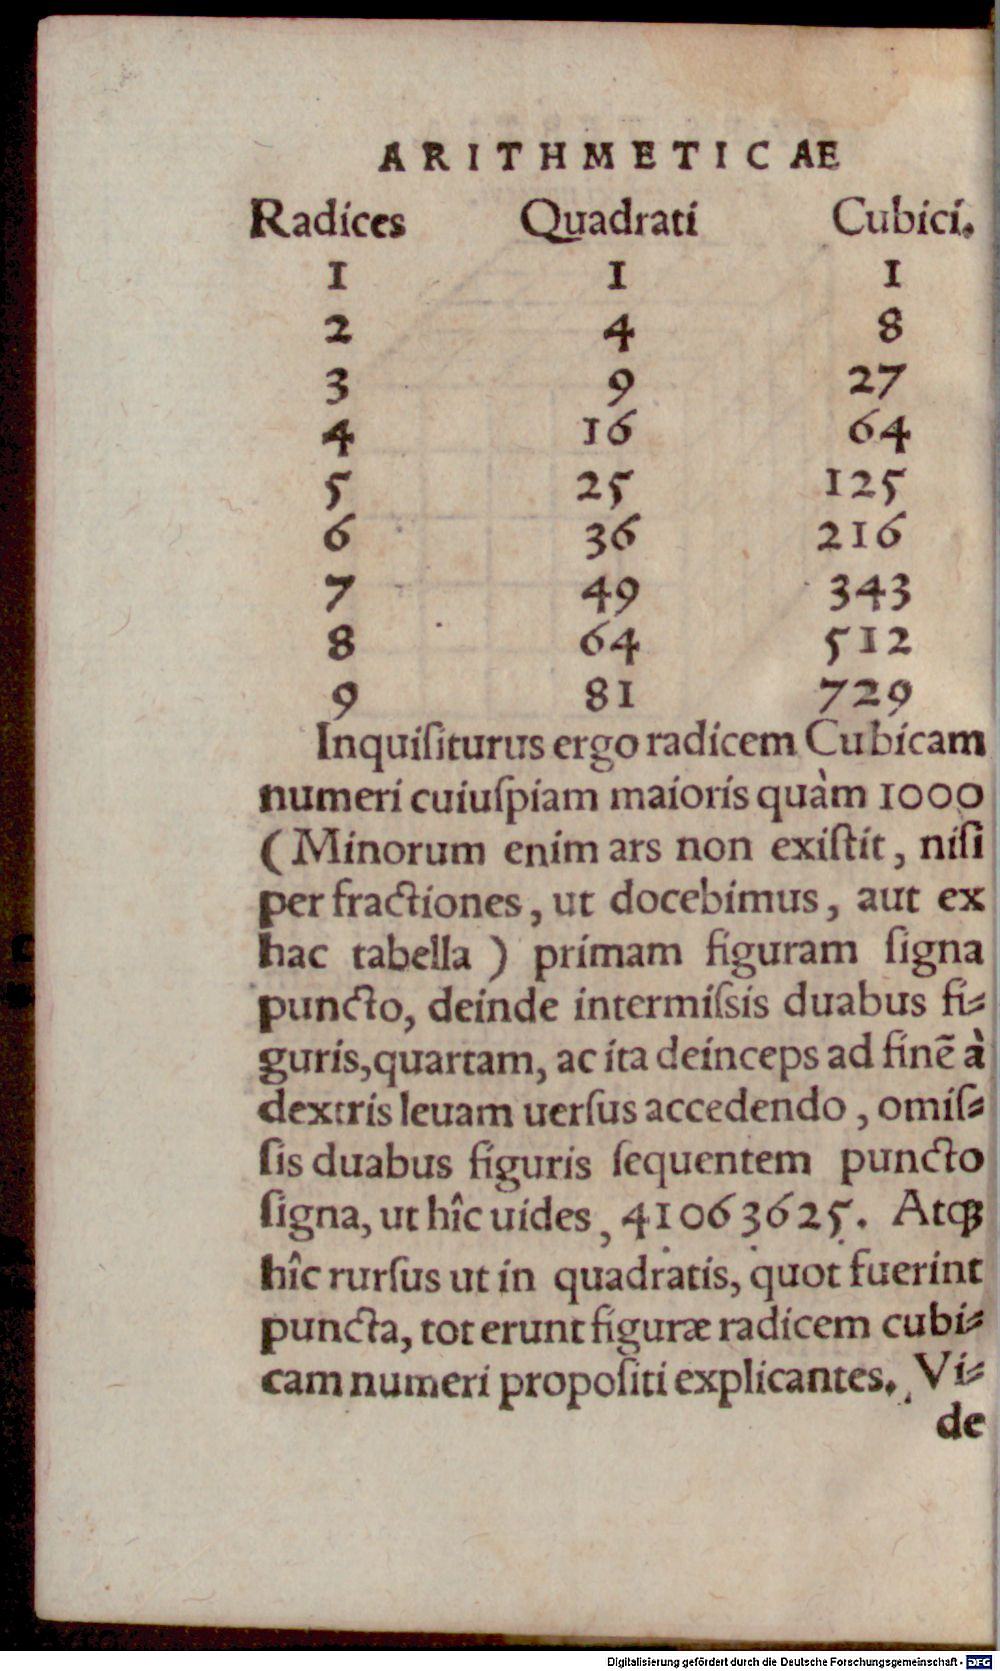 ARITHMETICAE
Radices Quadrati Cubici.
1 1 1
2 4 8
3 9 27
4 16 64
5 25 125
6 36 216
7 49 343
8 64 512
9 81 729
Inquiſiturus ergo radicem Cubicam
numeri cuiuſpiam maioris quàm 1000
(Minorum enim ars non exiſtit, niſi
per fractiones, ut docebimus, aut ex
hac tabella) primam figuram ſigna
puncto, deinde intermiſsis duabus fi⸗
guris, quartam, ac ita deinceps ad finẽ à
dextris leuam uerſus accedendo, omiſ⸗
ſis duabus figuris ſequentem puncto
ſigna, ut hîc uides, 41063625. Atqꝫ
hîc rurſus ut in quadratis, quot fuerint
puncta, tot erunt figuræ radicem cubi⸗
cam numeri propoſiti explicantes. Vi⸗
de
Digitalisierung gefördert durch die Deutsche Forschungsgemeinschaft - DFG